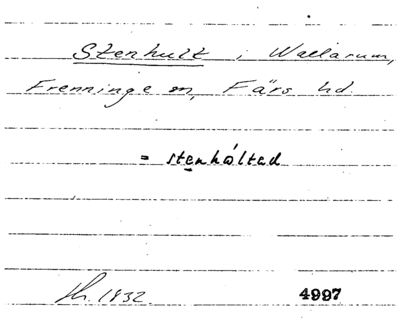 Stenhult i Wallarum,
Frenninge sn, Färs hd.
= stenhåltad
Th. 1832. 4997